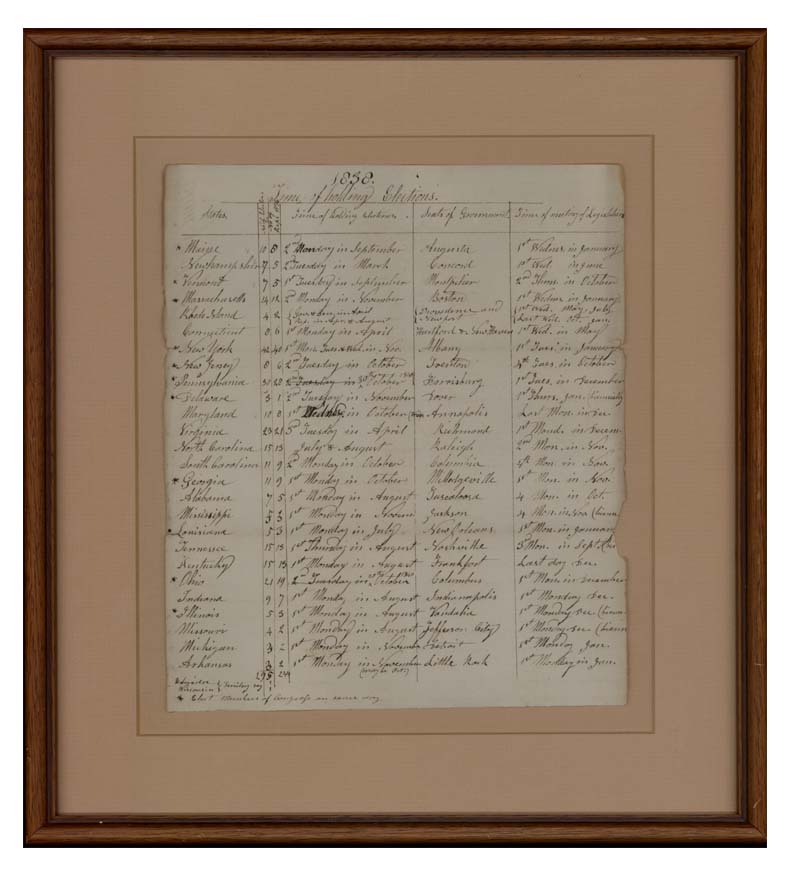 1838.
Time of holding Elections.
States. No of Electors No of Rept Time of holding elections. Seats of Government Time of meeting of Legislatures
* Maine 10 8 2nd Monday in September Augusta 1st Wednes. in January
Newhampshire 7 5 2 Tuesday in March Concord 1st Wed. in june
* Vermont 7 5 1st Tuesday in September Montpelier 2nd Thurs. in October
* Massachusetts 14 12 2nd Monday in November Boston 1st Wednes. in january
Rhode Island 4 2 { Gov & Sen. in April { Rep. in Apr & August { Providence and { Newport { 1st Wed. May, july { Last Wed. Oct. jany
Connecticut 8 6 1st Monday in April Hartford & New Haven 1st Wed. in May
* New York 42 40 1st Mon. Tues & Wed. in Nov. Albany 1st Tues. in january
* New Jersey 8 6 2nd Tuesday in October Trenton 4th Tues. in October
* Pennsylvania 30 28 2nd Tuesday in October Harrisburg 1st Tues. in December
* Delaware 3 1 2nd Tuesday in November Dover 1st Thurs. jan. (biennially
Maryland 10 8 1st Wednes in October Annapolis Last Mon. in Dec.
Virginia 23 21 3d Tuesday in April Richmond 1st Mond. in Decem
North Carolina 15 13 July & August Raleigh 2nd Mon. in Nov.
South Carolina 11 9 2nd Monday in October Columbia 4th Mon. in Nov.
* Georgia 11 9 1st Monday in October Milledgeville 1st Mon. in Nov.
Alabama 7 5 1st Monday in August Tuscaloosa 4 Mon. in Oct.
Mississippi 1st Monday in Novem Jackson 4 Mon. in Nov. (bienn
* Louisiana 5 3 1st Monday in July New Orleans 1st Mon. in januar
Tennessee 15 13 1st Thursday in August Nashville 3d Mon. in Sept. (bie
Kentucky 15 13 1st Monday in August Frankfort Last day Dec.
* Ohio 21 19 2nd Tuesday in October Columbus 1st Mon. in December
Indiana 9 7 1st Monday in August Indianapolis 1st Monday Dec.
* Illinois 5 3 1st Monday in August Vandalia 1st Monday Dec (bienn
Missouri 4 2 1st Monday in August Jefferson City 1st Monday Dec (bienn
Michigan 3 1st Monday in November Detroit 1st Monday Jan.
Arkansas 3 1st Monday in November Little Rock 1st Monday in Jan.
Wisconsin
* Elect Members of Congress on same way